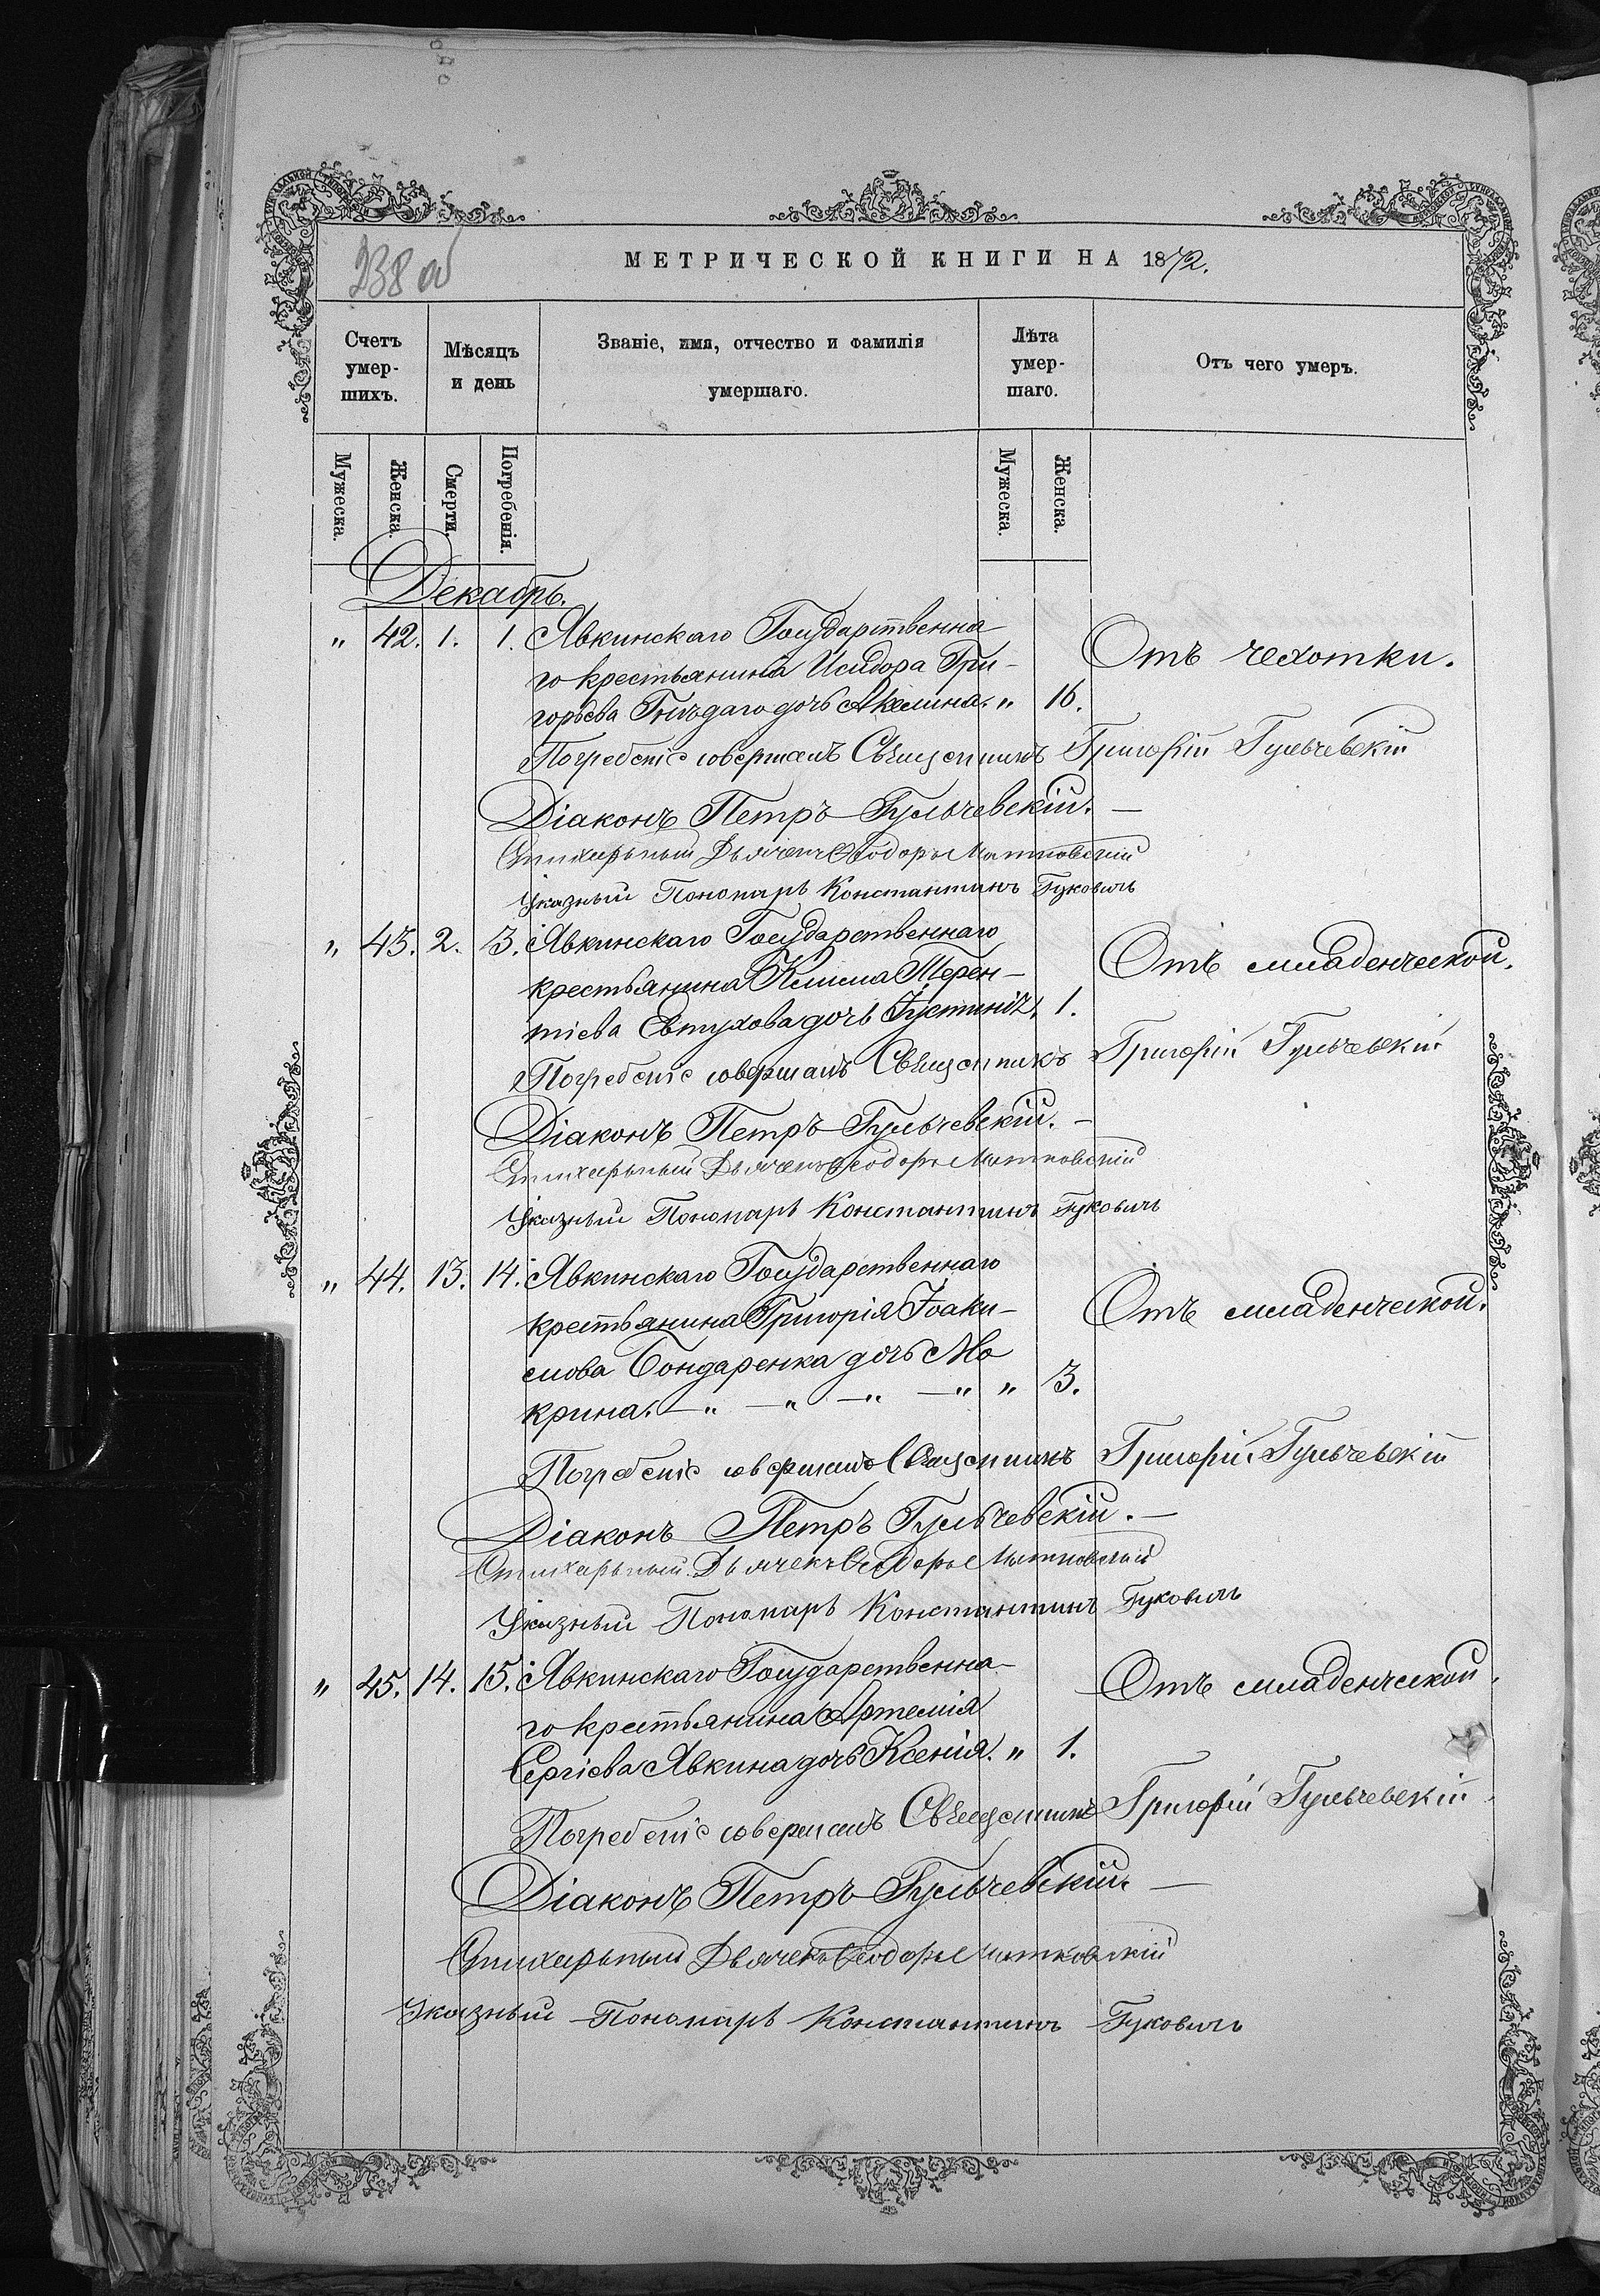 238 об
МЕТРИЧЕСКОЙ КНИГИ НА 1872.
Счетъ умер-шихъ.
Мѣсяцъ и день
Званіе, имя, отчество и фамилія умершаго.
Лѣта умер-шаго.
Отъ чего умеръ.
Мужеска.
Женска.
Смерти.
Погребенія.
Мужеска.
Женска.
Декабрь.
" 42. 1. 1. Явкинскаго Государственна-
го крестьянина Исидора Гри-
горьева Гнѣдаго дочь Акилина. " 16.
Отъ чехотки.
Погребеніе совершалъ Священникъ Григорій Гульчевскій
Діаконъ Петръ Гульчевскій. —
Стихарный Дьячекъ Ѳеодоръ Матковскій
Указный Пономарь Константинъ Гуковичъ
" 43. 2. 3. Явкинскаго Государственнаго
крестьянина Климa Терен-
тіева Евтухова дочь Іустинія. 1.
Отъ младенческой.
Погребеніе совершалъ Священникъ Григорій Гульчевскій
Діаконъ Петръ Гульчевскій. —
Стихарный Дьячекъ Ѳеодоръ Матковскій
Указный Пономарь Константинъ Гуковичъ
" 44. 13. 14. Явкинскаго Государственнаго
крестьянина Григорія Іоаки-
мова Бондаренка дочь Мо
крина. — " — " — " — " " 3.
Отъ младенческой.
Погребеніе совершалъ Священникъ Григорій Гульчевскій
Діаконъ Петръ Гульчевскій. —
Стихарный Дьячекъ Ѳеодоръ Матковскій
Указный Пономарь Константинъ Гуковичъ
" 45. 14. 15. Явкинскаго Государственна-
го крестьянина Артемія
Сергіева Явкина дочь Ксенія. " 1.
Отъ младенческой.
Погребеніе совершалъ Священникъ Григорій Гульчевскій
Діаконъ Петръ Гульчевскій. —
Стихарный Дьячекъ Ѳеодоръ Матковскій
Указный Пономарь Константинъ Гуковичъ